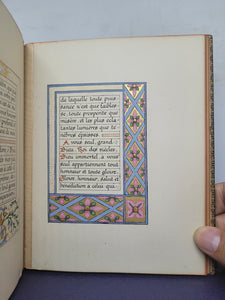 de laquelle toute puis-
sance n'est que faibles-
se, toute prospérité que
misère, et les plus écla-
tantes lumières que té-
nèbres épaisses.
A vous seul, grand
Dieu, Roi des siècles,
Dieu immortel, à vous
seul appartiennent tout
honneur et toute gloire.
Gloire, honneur, salut et
bénédiction à celui qui